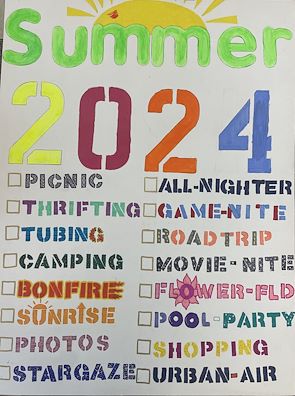 Summer
2024
PICNIC
THRIFTING
TUBING
CAMPING
BONFIRE
SUNRISE
PHOTOS
STARGAZE
ALL-NIGHTER
GAME-NITE
ROADTRIP
MOVIE-NITE
FLOWER-FLD
POOL-PARTY
SHOPPING
URBAN-AIR